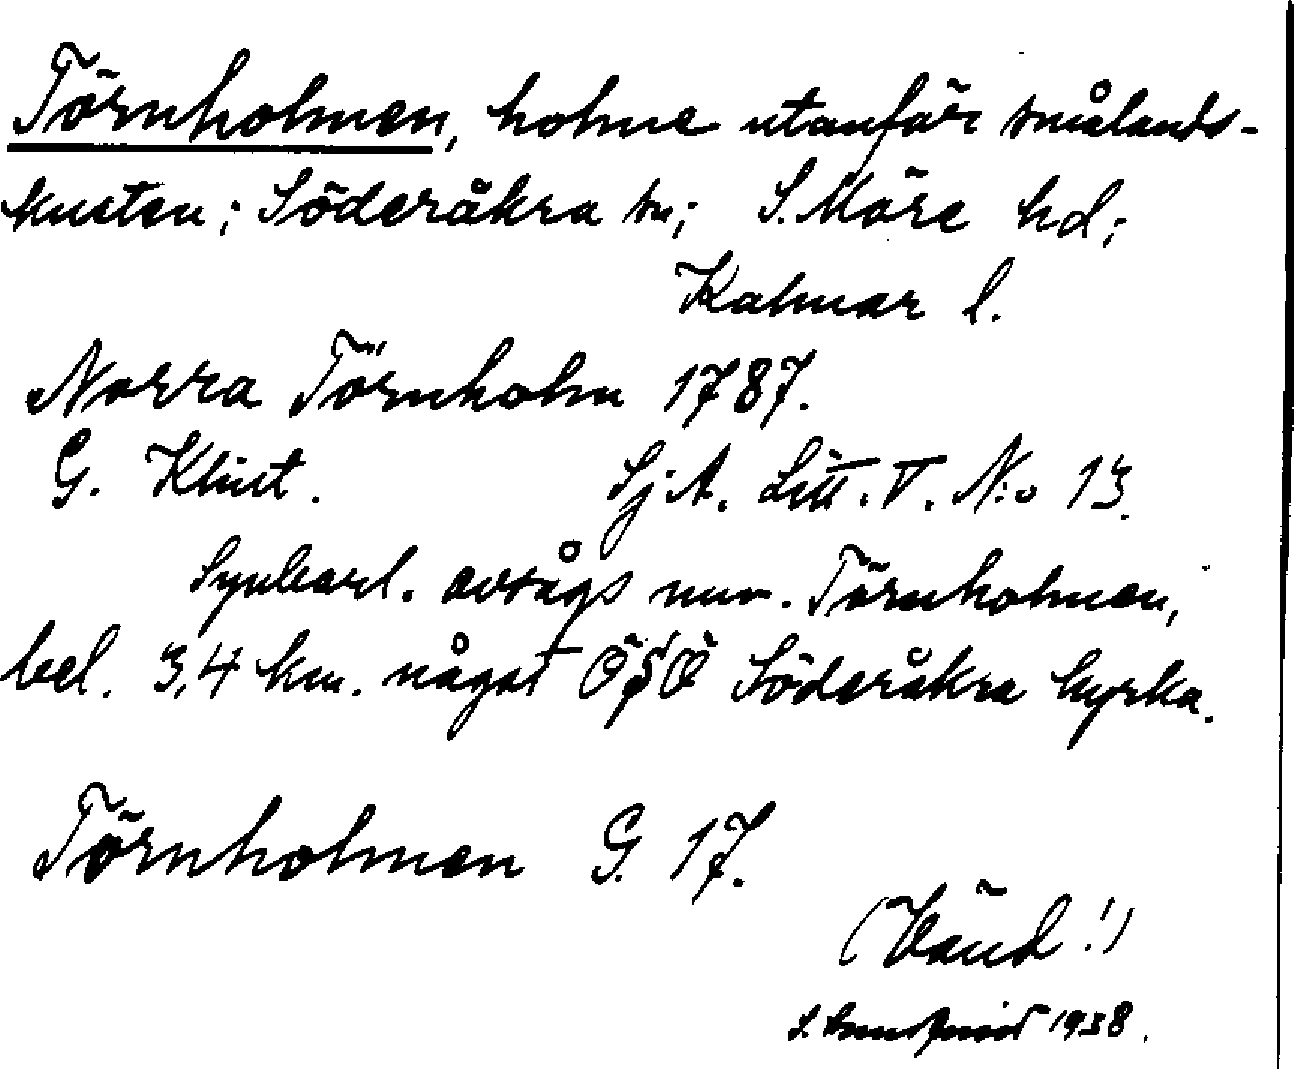 Törnholmen, holme utanför smålands-
kusten; Söderåkra sn; S. Möre hd;
Kalmar l.
Norra Törnholm 1787.
G. Klint. SjA. Litt. V. N:o 13.
Synbarl. avsågs nuv. Törnholmen,
bel. 3,4 km. något ÖSÖ Söderåkra kyrka.
Törnholmen G. 17.
(Vänd!)
S. 1938.